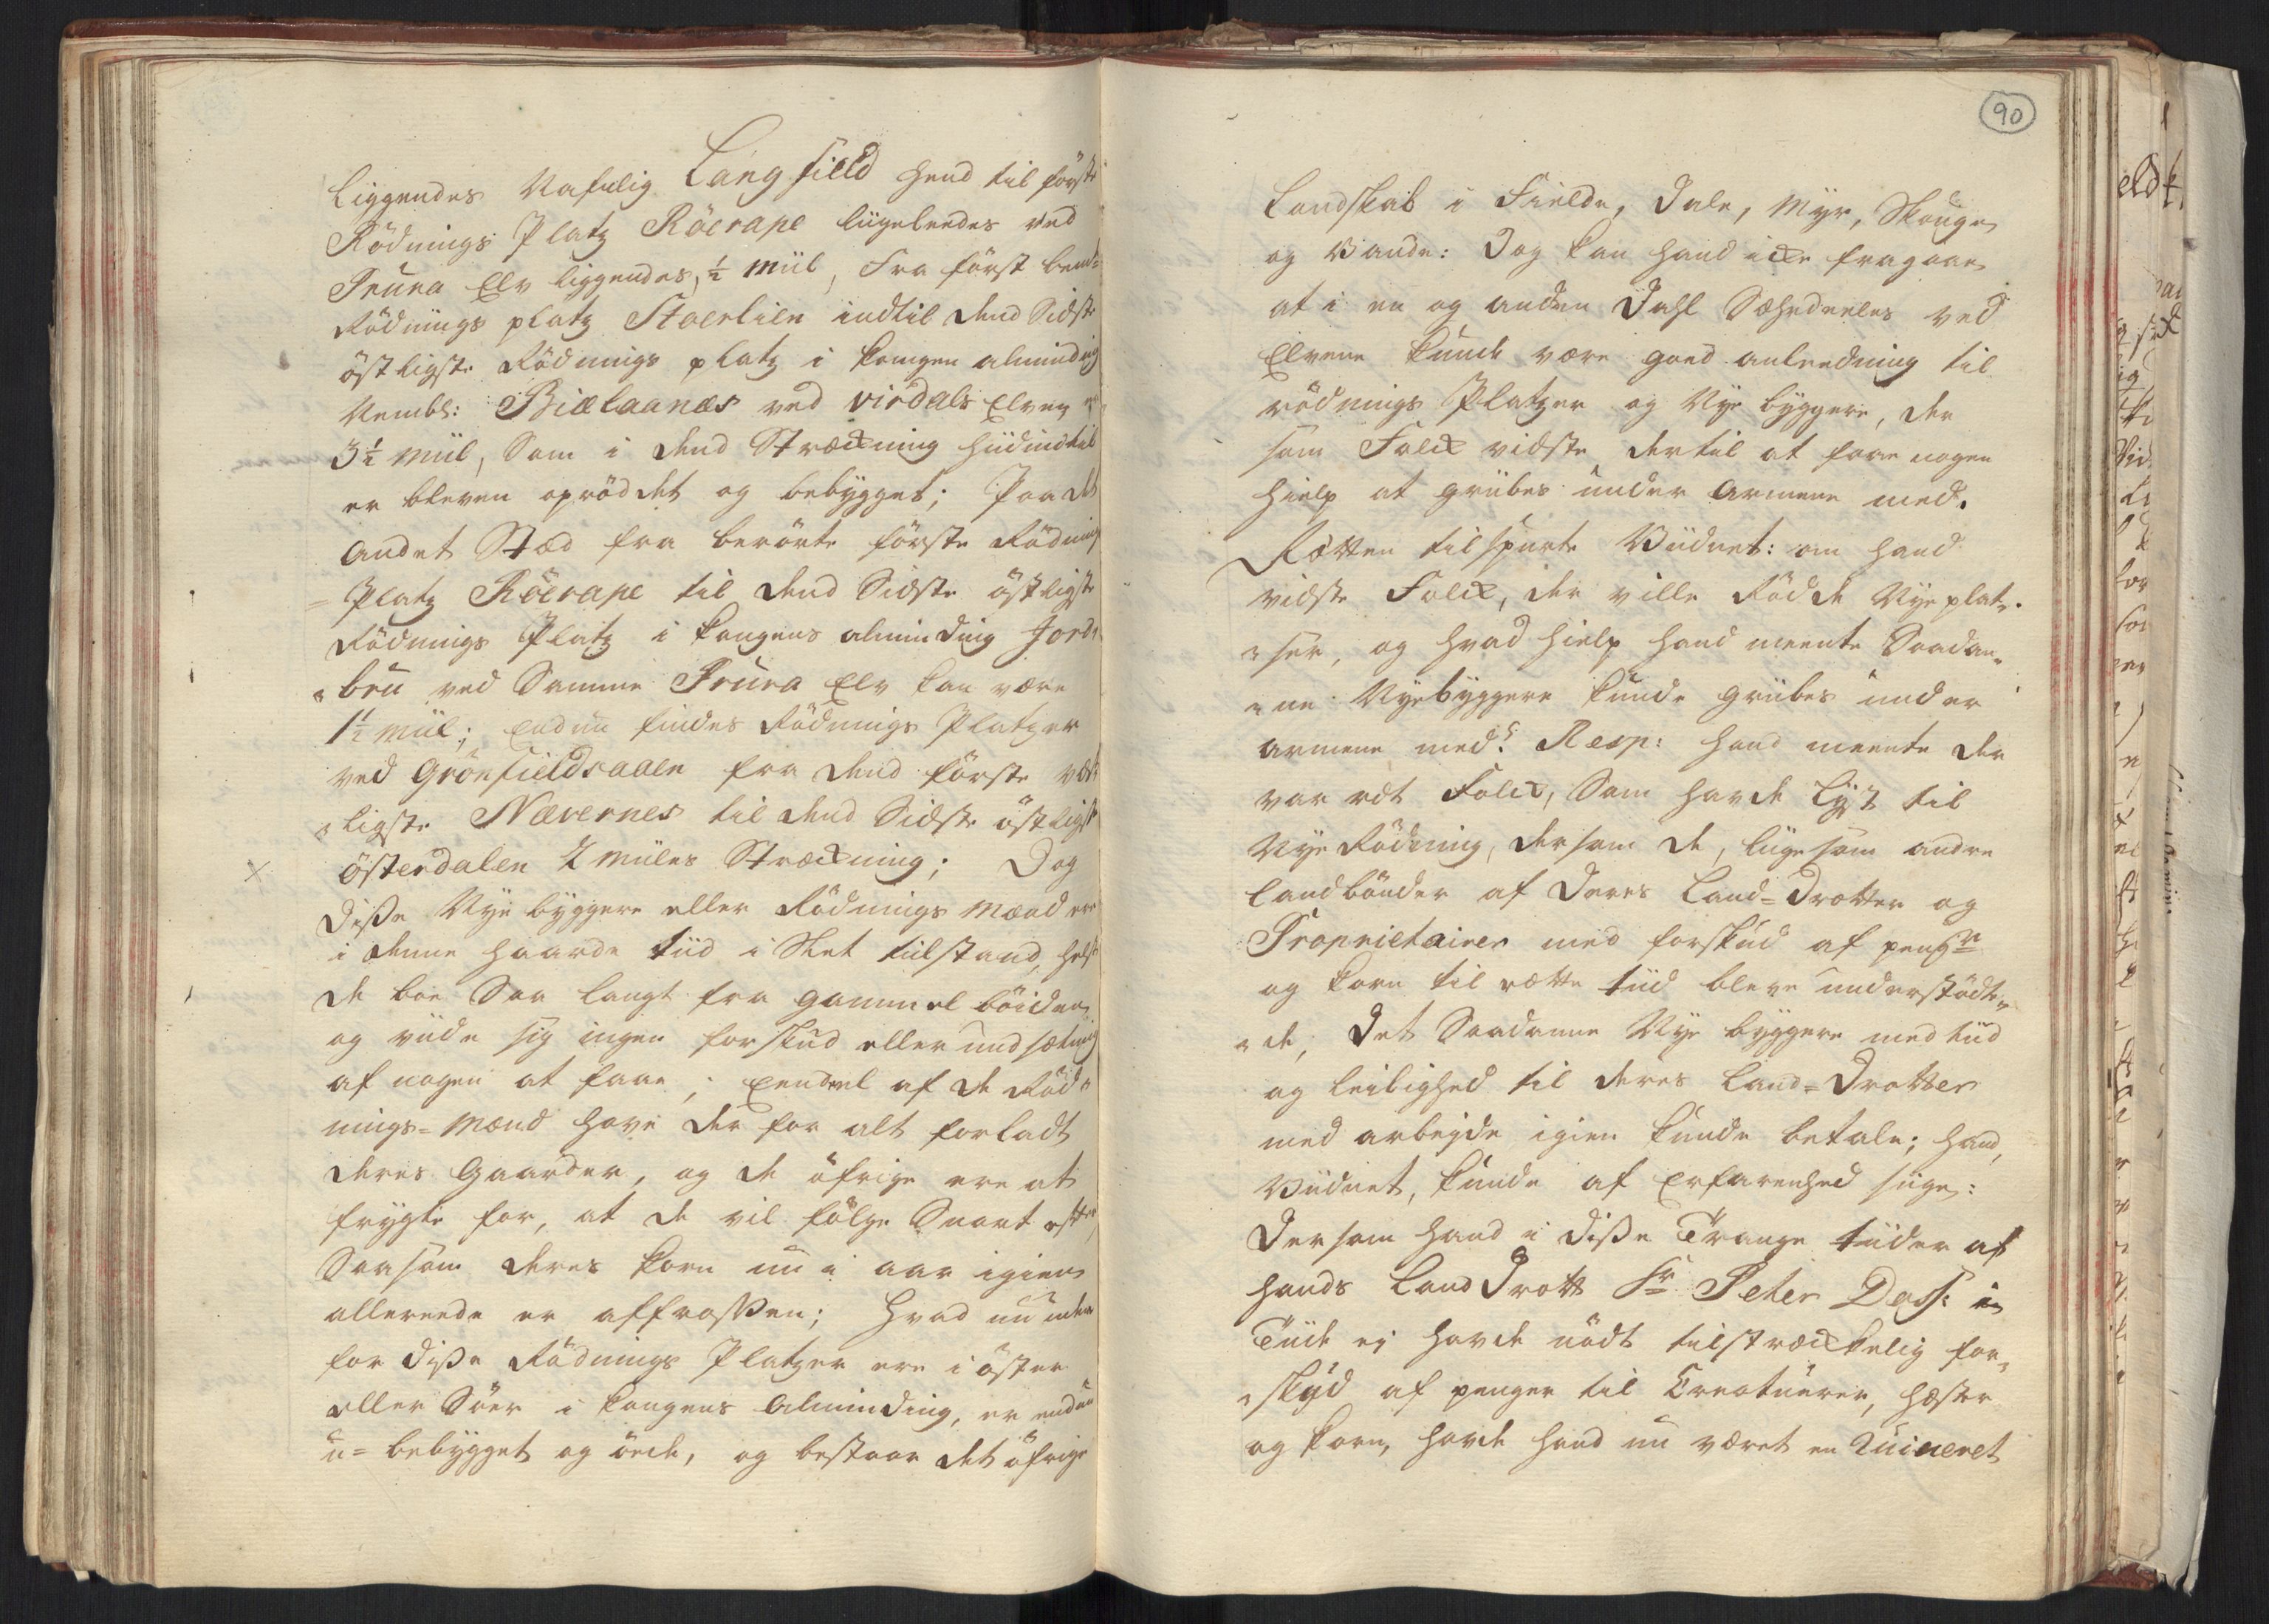 Liggendes Nafnlig Langfield hend til första
Rödnings Platz Röerape liigeleedes ved
Prura Elv liggendes, ½ Miil, Fra först bem:
Rödnings platz Stoerlien indtil dend Sidste
östligste Rödnings platz i Kongen alminding
Nembl: Biælaanæs ved Virdals Elven
3½ Miil, Som i dend Strækning hiidindtil
er bleven opröddet og bebygget; Paa det
andet Stæd fra berörte förste Rödnings
=Platz Röerape til dend Sidste östligste
Rödnings Platz i Kongens alminding Jord-
bru ved Samme Prura Elv kan være
1½ Miil; Endnu findes Rödnings Platzer
ved Grönfieldsaaen fra dend förste væst
ligste Nævernes til dend Sidste östligste
Österdalen 2 Miiles Strækning; Dog
Diße Nye byggere eller Rödnings Mænd ere
i denne haarde tiid i Slet tilstand, helst
de boe Saa langt fra gammel böiden
og viide sig ingen forskud eller undsætning
af nogen at faae; Eendeel af de Röd-
nings-Mænd have der for alt forladt
deres Gaarder, og de öfrige ere at
frygte for, at de vil fölge Snart efter,
Saasom deres Korn nu i aar igien
allereede er affroßen; Hvad nu
for diße Rödnings Platzer ere i öster
eller Söer i Kongens Alminding, er endnu
u=bebygget og öede, og bestaar det öfrige
90
Landskab i Fielde, Dale, Myr, Skouge
og Vande: Dog kan hand icke fragaae
at i en og anden Dahl Sæhrdeeles ved
Elvene kunde være goed anleedning til
rödnings Platzer og Nye byggere, der
som Folck vidste dertil at faae nogen
hielp at griibes under Armene med.
Rætten tilspurte Viidnet: om hand
vidste Folck, der ville Rödde Nye plat-
ser, og hvad hielp hand meente Saadan-
ne Nyebyggere kunde griibes under
armene med? Resp: hand meente der
var vel Folck, Som havde Lyst til
Nye Rödning, dersom de, liigesom andre
landbönder af deres Land=Drotter og
Proprietairer med forskud af penge
og Korn til rætte tiid bleve understödte-
de, det Saadanne Nye byggere med tiid
og leilighed til deres Land=Drotter
med arbejde igien kunde betale; hand,
Viidnet, kunde af Erfarenhed siige:
Dersom hand i diße Trange tiider af
hands Land Drott Sr Peter Dass: i
Tiide ej havde nödt tilstræckkelig for-
skud af penger til Creaturer, hæster
og Korn, havde hand nu været en Ruineret